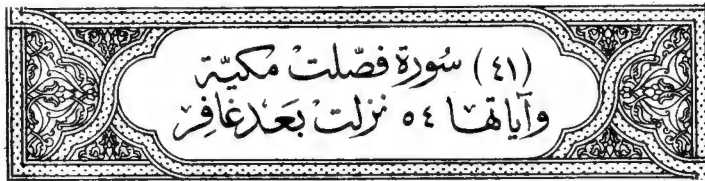 (٤١) سُورَة فصّلت مكيّة
وآياتها ٥٤ نزلت بَعَد غافِر